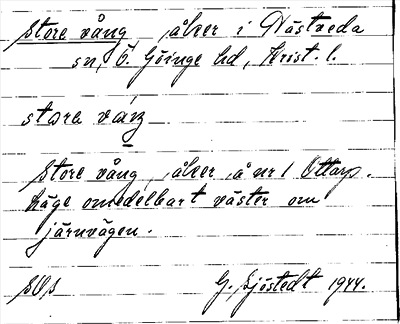 Store vång, åker i Nästveda
sn, Ö. Göinge hd, Krist. l.
stora váŋ
Store vång, åker å nr 1 Ottarp.
Läge omedelbart väster om
järnvägen.
G. Sjöstedt 1944.